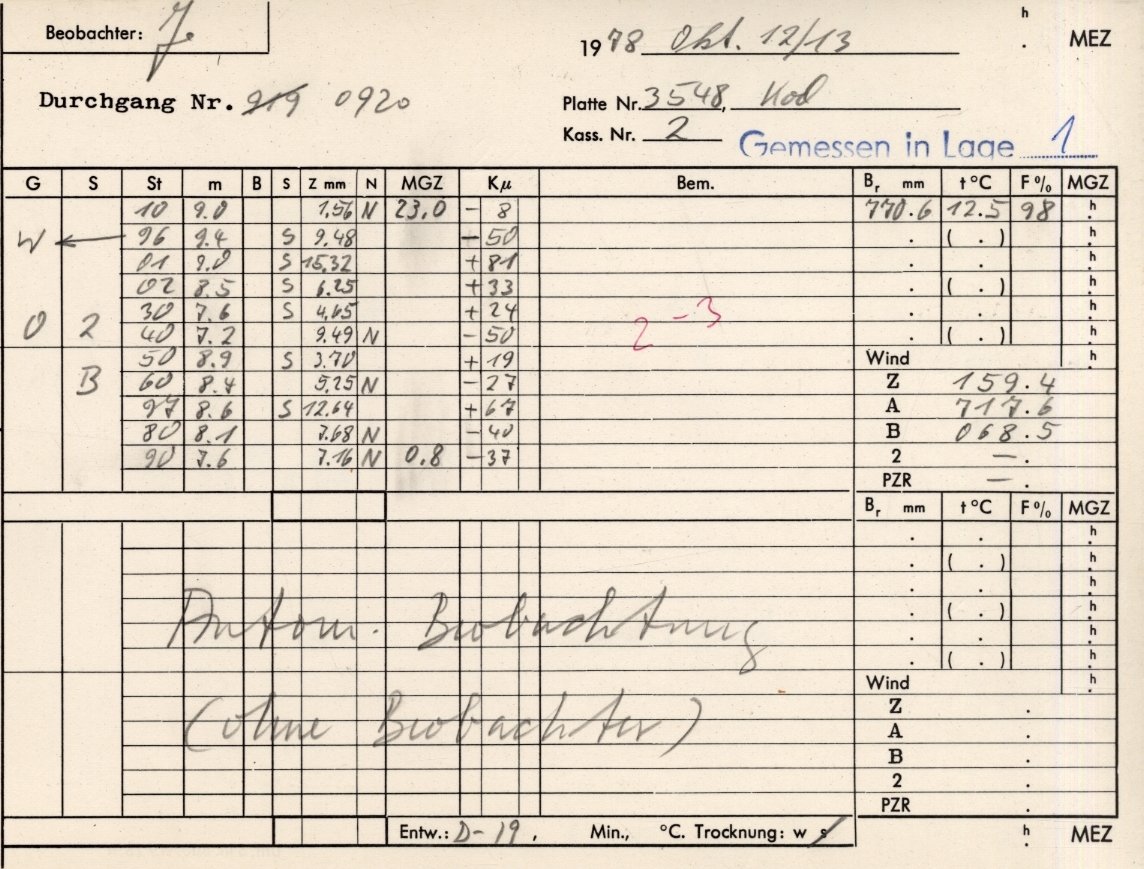 Beobachter: J.
h
1978 Okt. 12/13 . MEZ
Durchgang Nr. 919 0920
Platte Nr. 3548, Kod
Kass. Nr. 2
Gemessen in Lage 1
G S St m B S Z mm N MGZ Kμ Bem. Br mm t°C F% MGZ
10 9.0 1,56 N 23,0 - 8 770.6 12.5 98 h
W ← 96 9.4 S 9.48 - 50 . ( . ) h
01 9.0 S 15,32 + 81 . . h
02 8.5 S 6.25 + 33 . ( . ) h
30 7.6 S 4,65 + 24 . . h
O 2 40 7.2 9.49 N - 50 2-3 . ( . ) h
50 8.9 S 3.70 + 19 Wind h
B 60 8.4 5,25 N - 27 Z 159.4
97 8.6 S 12.64 + 67 A 717.6
80 8.1 7.68 N - 40 B 068.5
90 7.6 7.16 N 0.8 - 37 2 — .
PZR — .
Br mm t°C F% MGZ
. . h
. ( . ) h
. . h
. ( . ) h
Autom. Beobachtung
. . h
. ( . ) h
Wind h
Z .
(ohne Beobachter)
A .
B .
2 .
PZR .
Entw.: D-19, Min., °C. Trocknung: w s h . MEZ